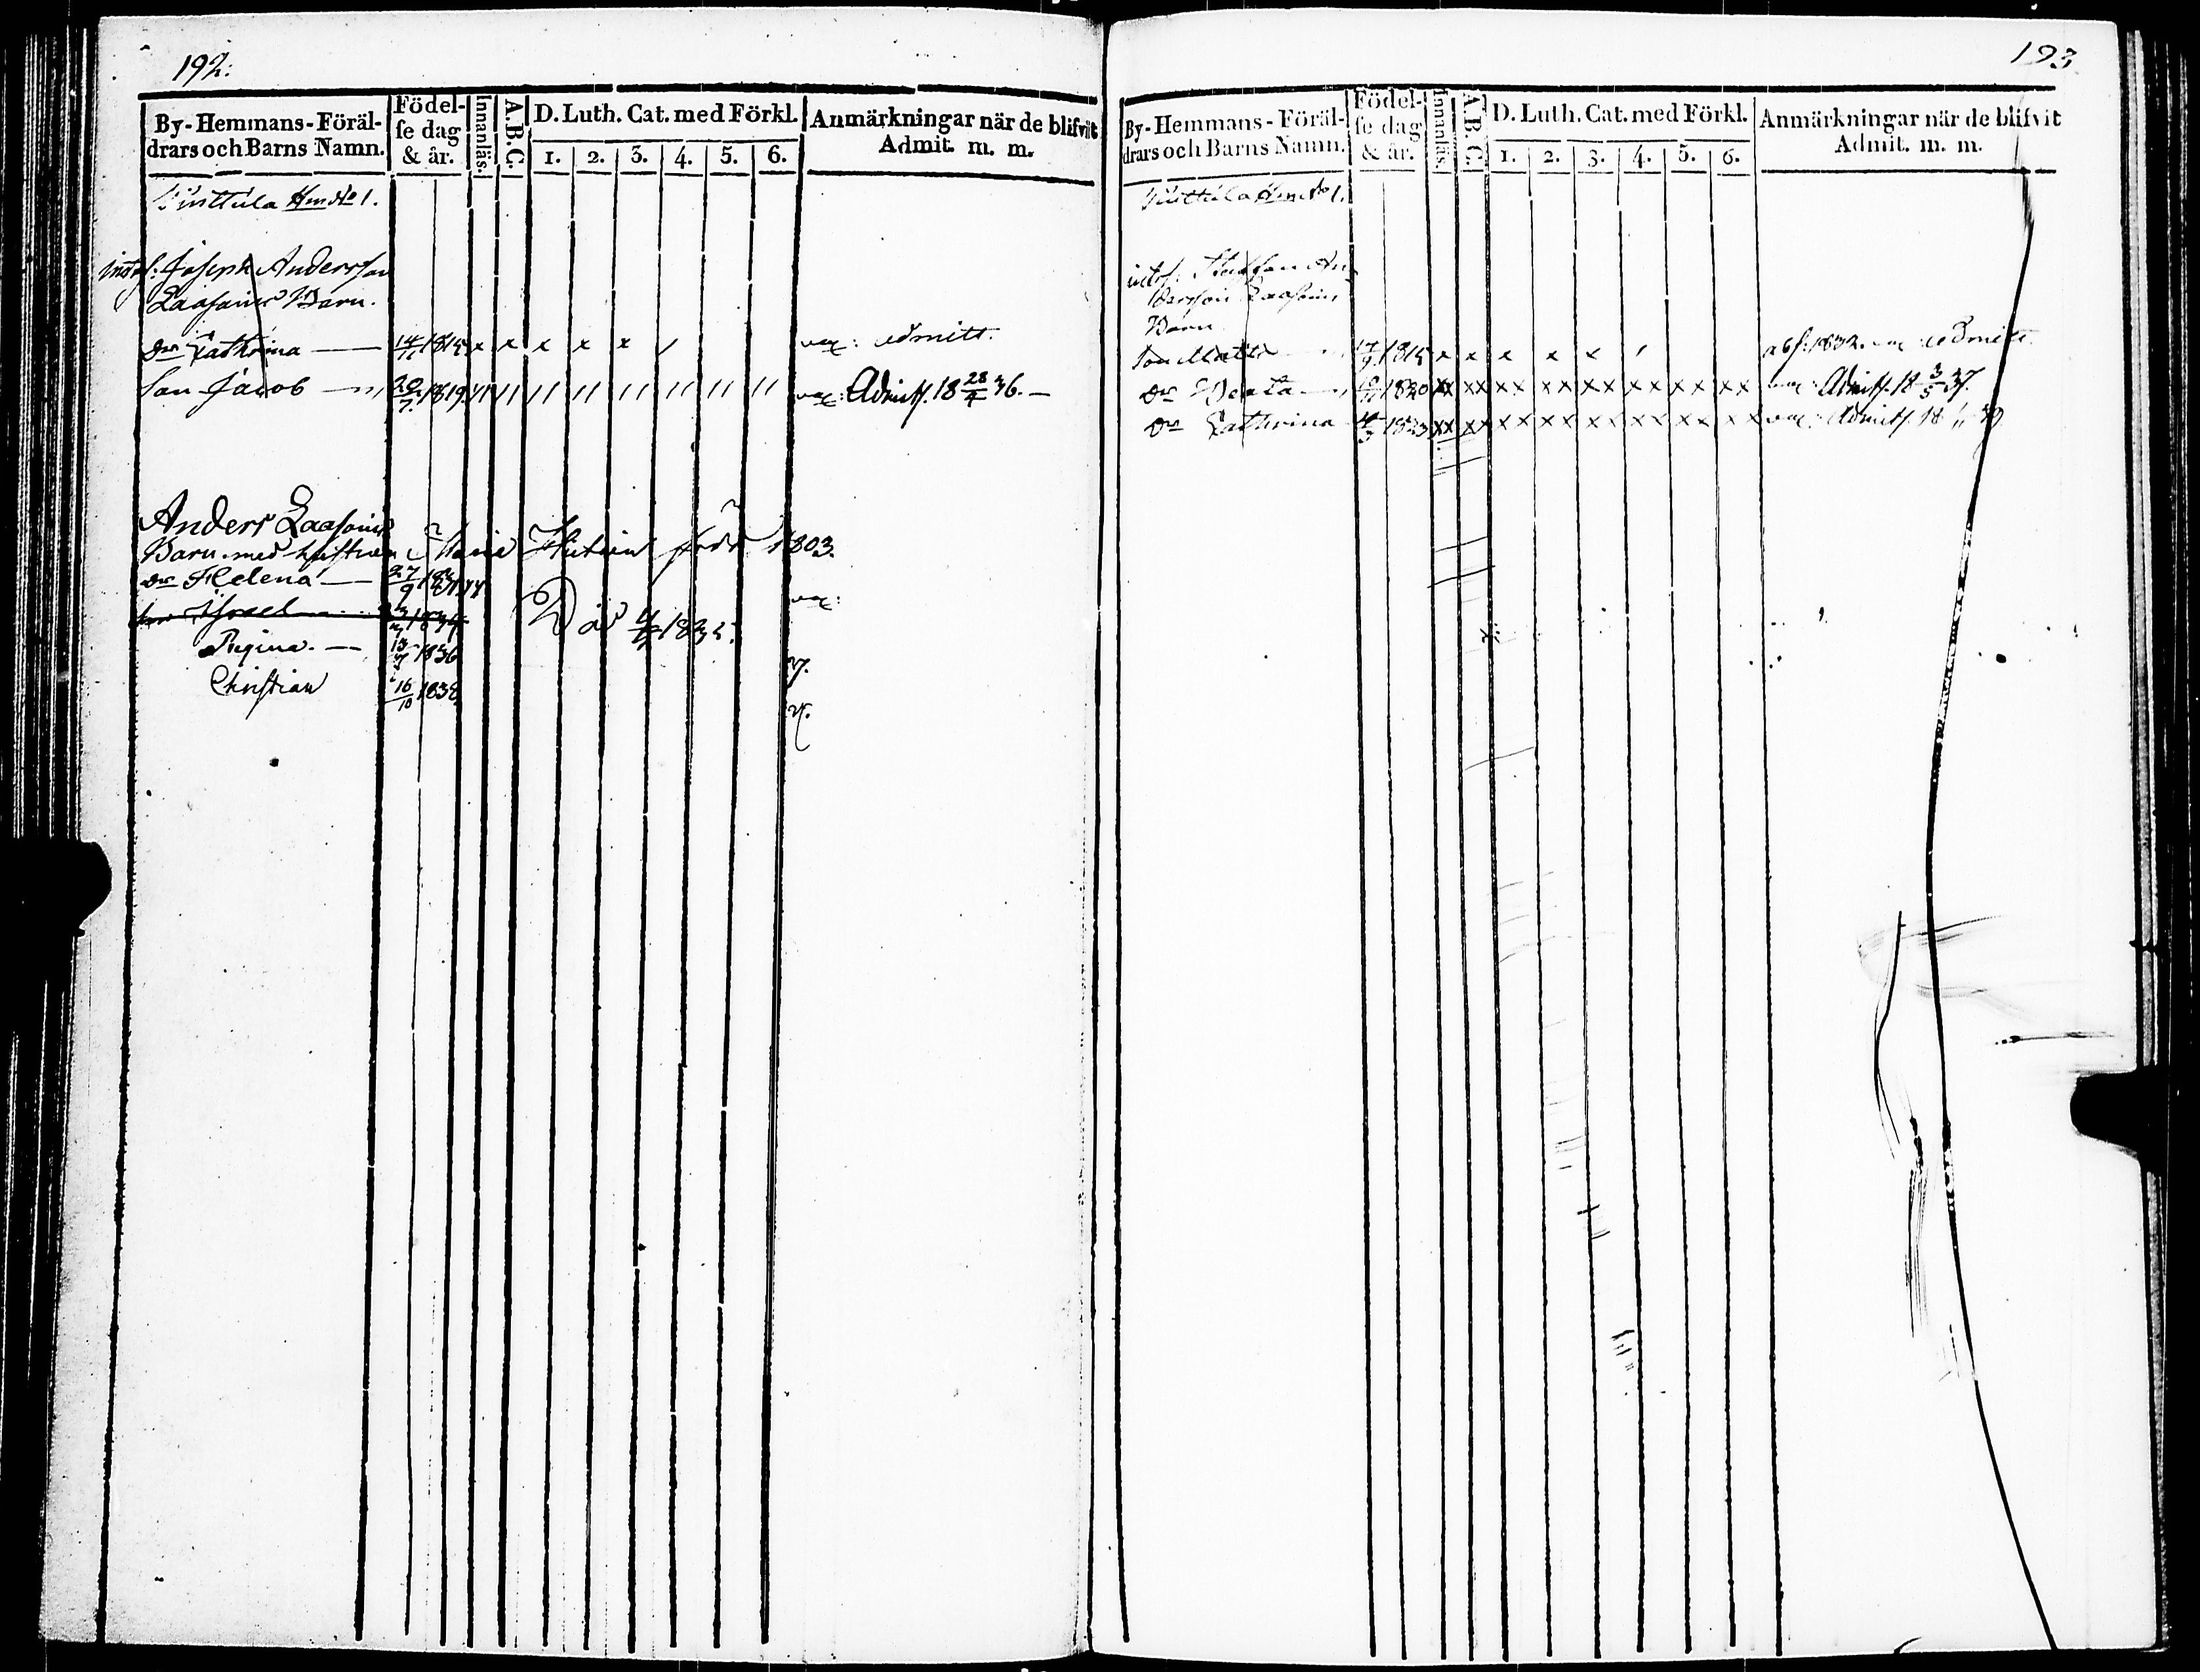 192.
By-Hemmans-Föräl-
drars och Barns Namn.
Födel-
se dag
& år.
Innanläs.
A.B.C.
D. Luth. Cat. med Förkl.
1. 2. 3. 4. 5. 6.
Anmärkningar när de blifvit
Admit. m. m.
Hm No 1.
Joseph Andersson
Laasoin Barn.
Dr Cathrina — 1815 x x x x x / vac: admitt.
Son Jacob — 20/7 1819 // // // // // // // // vac: Admitt. 18 28/4 36. —
Anders Laasoin
Barn med hustrun född 1803.
Dr Helena — 27/9 vac:
Israel 1834 Död 1835.
Regina. — 13 1836 v.
Christian 16/10 1838 v.
193
By-Hemmans-Föräl-
drars och Barns Namn.
Födel-
se dag
& år.
Innanläs.
A.B.C.
D. Luth. Cat. med Förkl.
1. 2. 3. 4. 5. 6.
Anmärkningar när de blifvit
Admit. m. m.
No 1.
Staffan An-
dersson Laasoin
Barn
Son Matts 17/9 1815 x x x x x / abs: 1832. vac admitt.
Dr Beata 1820 xx xx xx xx xx xx xx xx vac: Admitt. 18 3/5 37.
Dr Cathrina 1823 xx xx xx xx xx xx xx xx vac: Admitt. 18